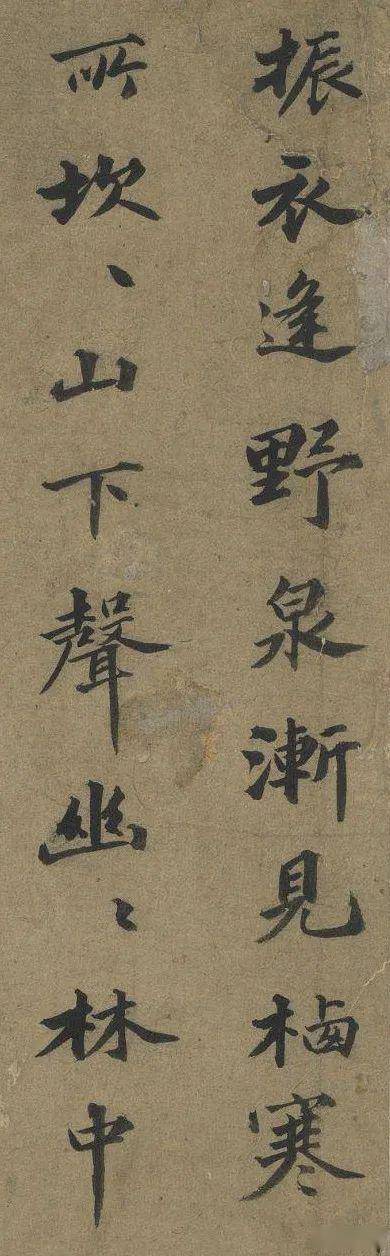 振衣逢野泉漸見栖寒
所坎、山下聲幽、林中